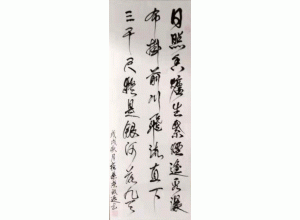 日照香爐生紫煙遙看瀑
布掛前川飛流直下
三千尺疑是銀河落九天
戊戌秋月